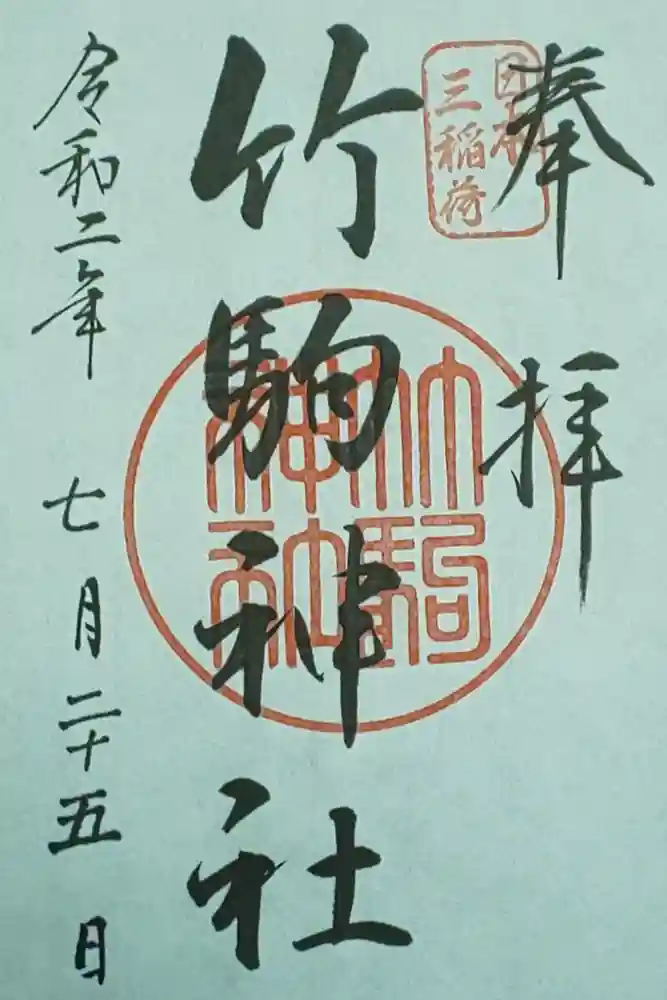 奉拝
日本
三稲荷
竹駒神社
竹駒
神社
令和二年 七月二十五日